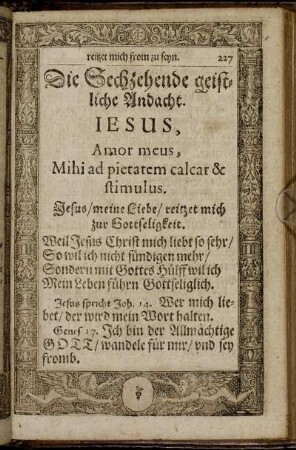 reitzet mich from zu seyn. 227
Die Sechzehende geist-
liche Andacht.
IESUS,
Amor meus,
Mihi ad pietatem calcar &
stimulus.
Jesus/meine Liebe/reitzet mich
zur Gottseligkeit.
Weil Jesus Christ mich liebt so sehr/
So wil ich nicht sündigen mehr/
Sondern mit Gottes Hülff wil ich
Mein Leben führn Gottseliglich.
Jesus spricht Joh. 14. Wer mich lie-
bet/der wird mein Wort halten.
Genes 17. Ich bin der Allmächtige
GOTT/wandele für mir/vnd sey
fromb.